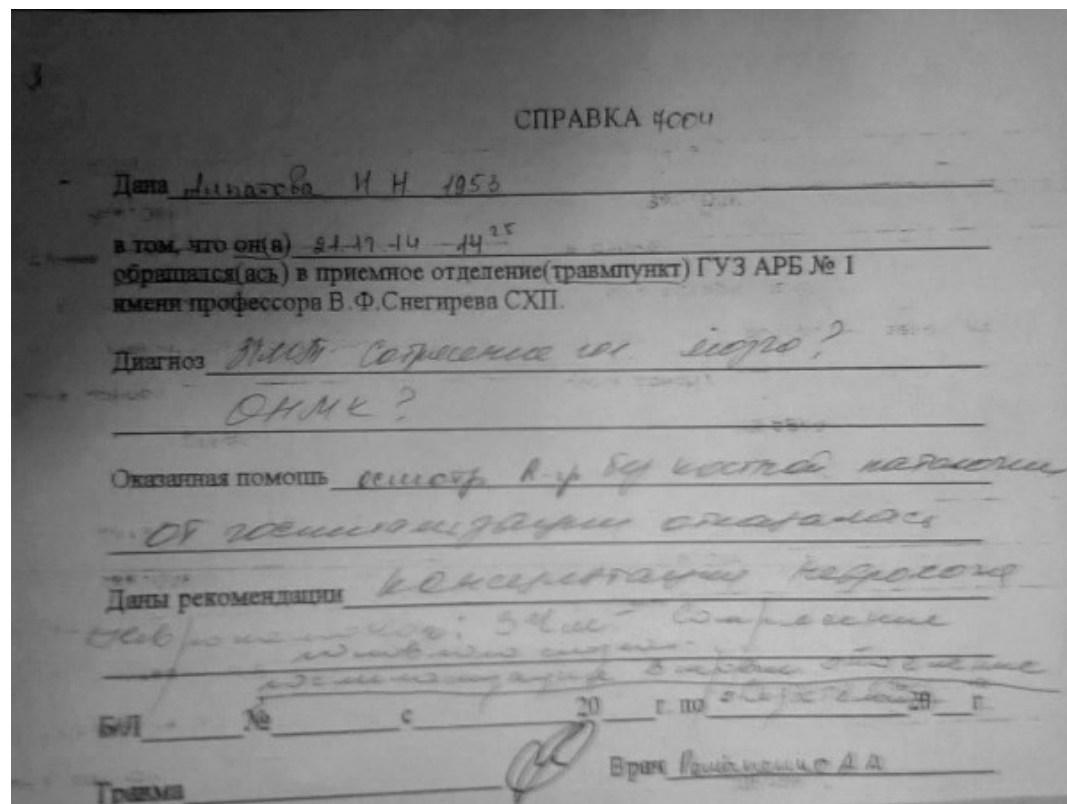 3
СПРАВКА 7004
Дана Липатова Н Н 1953
в том, что он(а) 21.12.14 14 25
обращался(ась) в приемное отделение(травмпункт) ГУЗ АРБ № 1
имени профессора В.Ф.Снегирева СХП.
Диагноз ЗЧМТ Сотрясение гол мозга?
ОНМК?
Оказанная помощь осмотр R-гр без костной патологии
от госпитализации отказалась
Даны рекомендации консультация невролога
ЗЧМТ Сотрясение
головного мозга
госпитализация в отделение
Б/Л № с 20 г. по 20 г.
Врач Романенко А А
Травма